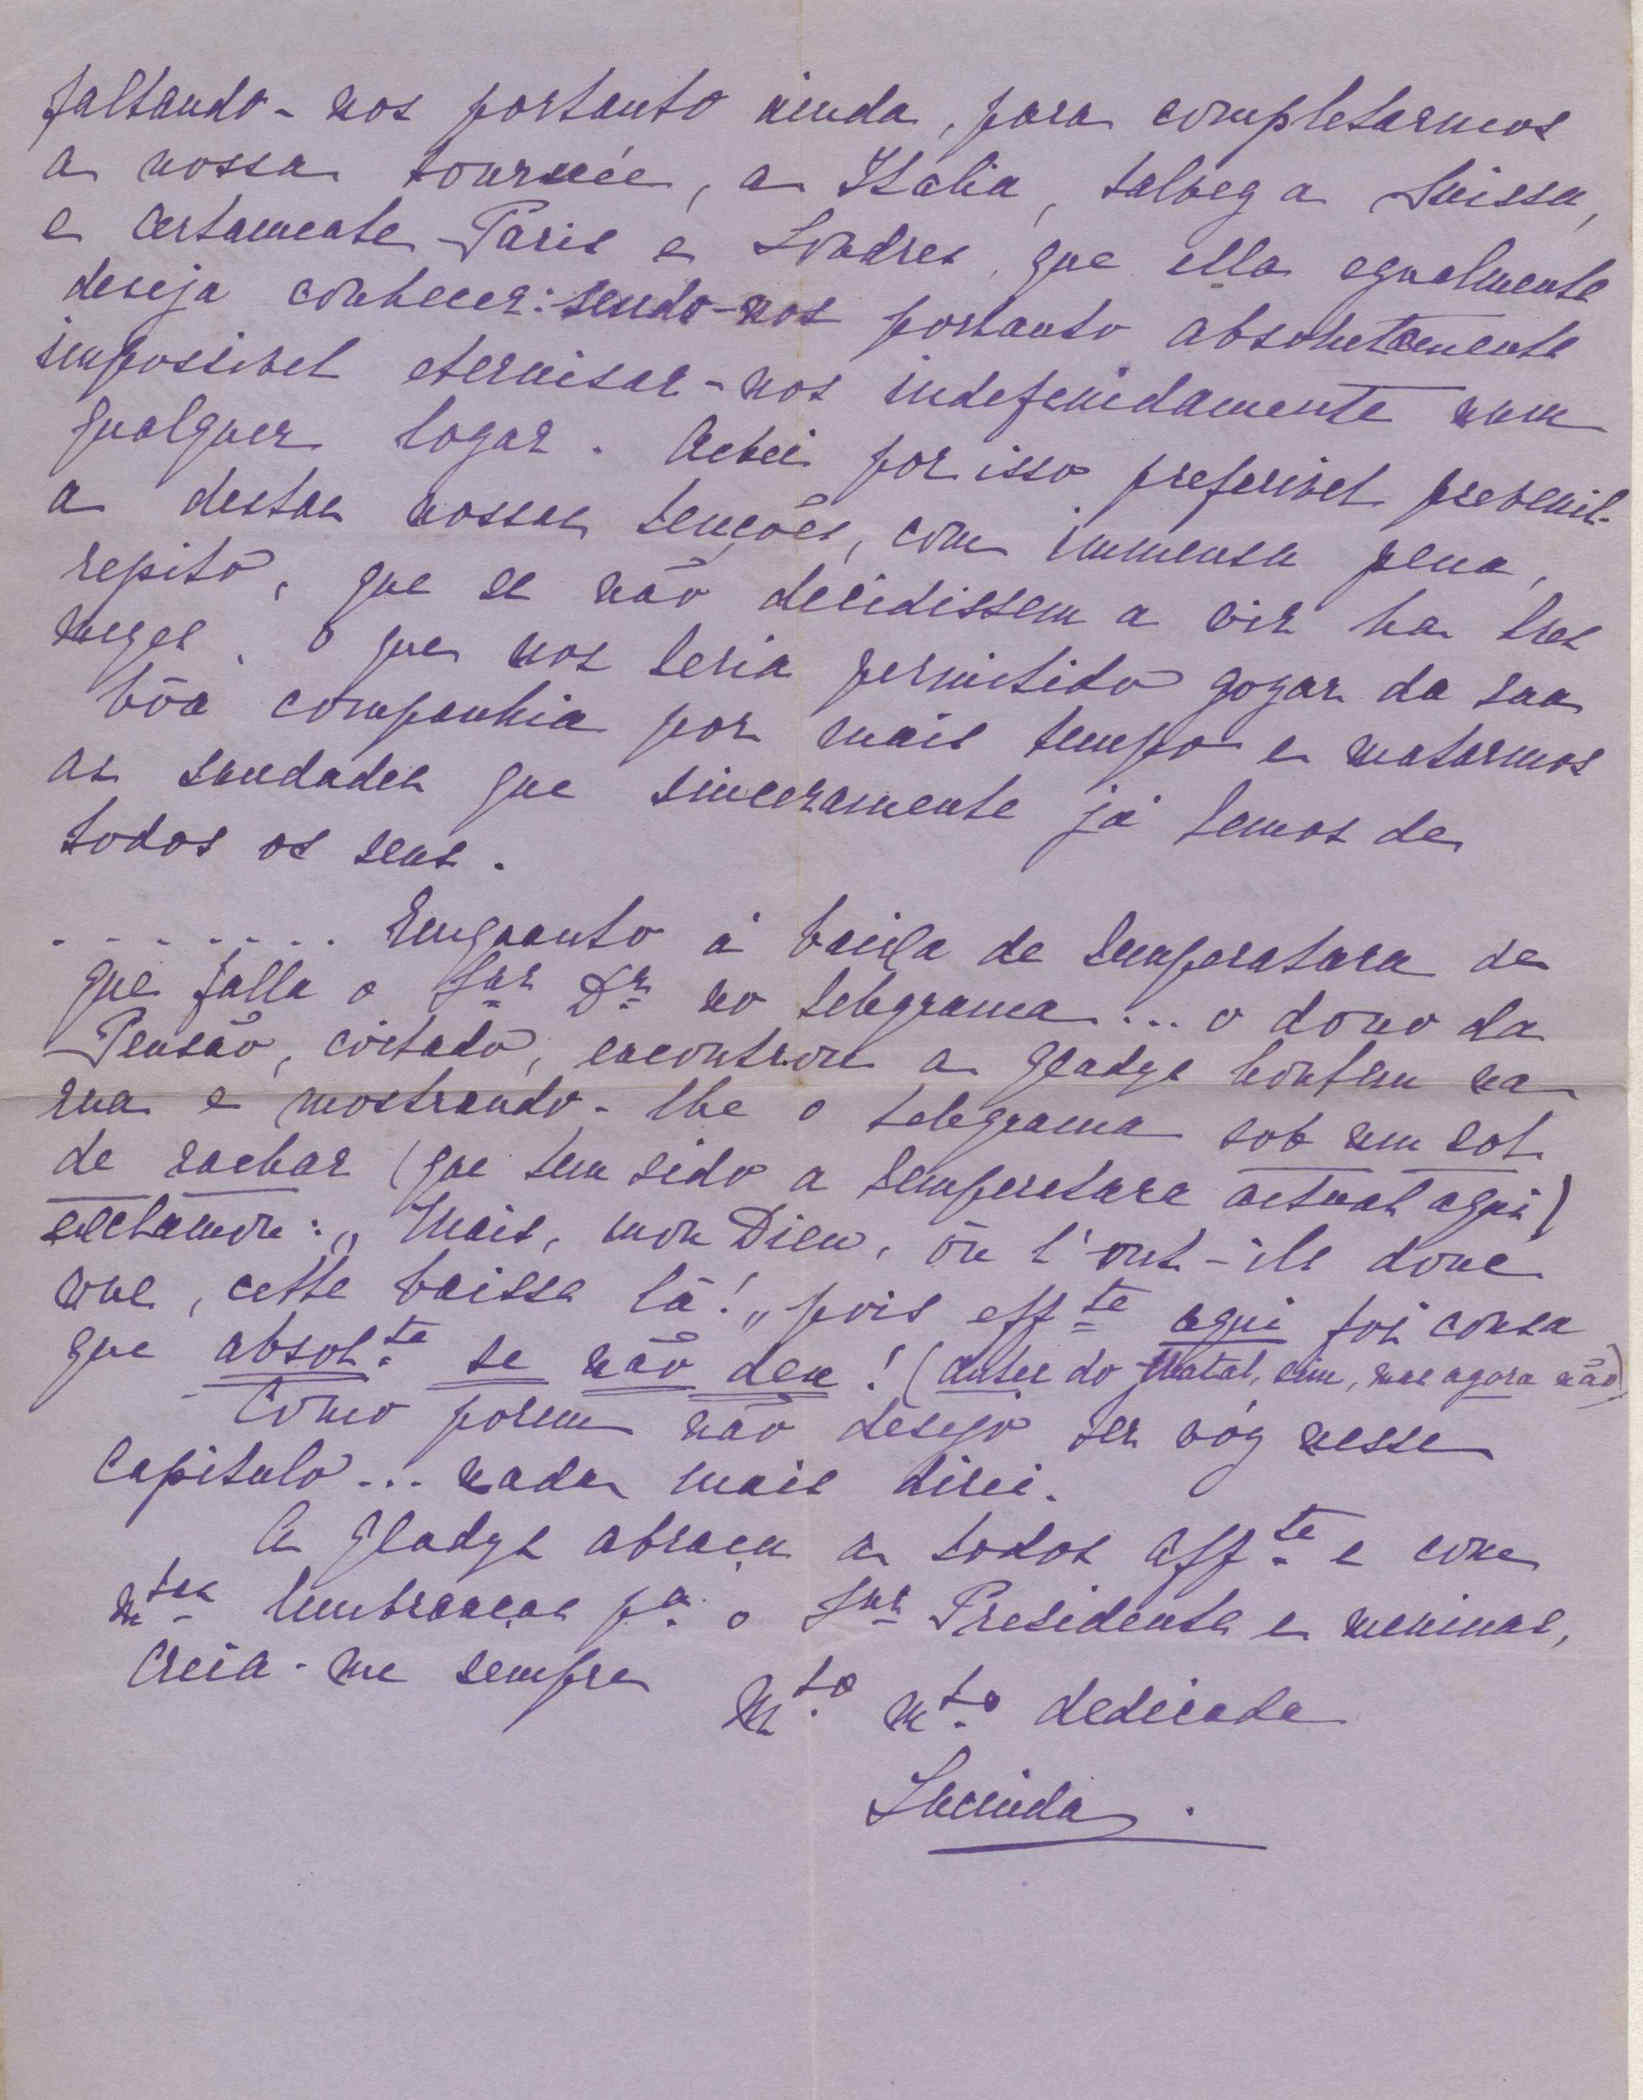 faltando-nos portanto ainda, para completarmos
a nossa tournée, a Italia, talvez a Suissa,
e certamente Paris e Londres, que ella egualmente
deseja conhecer: sendo-nos portanto absolutamente
impossivel eternisar-nos indefenidamente num
qualquer logar. Achei por isso preferivel prevenil-
a destas nossas tenções, com immensa pena,
repito, que se não decidissem a vir ha tres
mezes, o que nos teria permitido gozar da sua
bôa companhia por mais tempo e matarmos
as saudades que sinceramente já temos de
todos os seus.
. . . . . . . . Emquanto á baixa de temperatura de
que falla o Snr Dr no telegrama... o dono da
Pensão, coitado, encontrou a Gladys hontem na
rua e mostrando-lhe o telegrama sob um sol
de rachar (que tem sido a temperatura actual aqui)
exclamou: „Mais, mon Dieu, ōu l'ont-ils donc
vue, cette baisse là!„ pois effte aqui foi cousa
que absolte se não deu! (antes do Natal, sim, mas agora não)
Como porem não desejo ser vóz nesse
capitulo... nada mais direi.
A Gladys abraça a todos affte e com
mtas lembranças pa o Snr Presidente e meninas,
Creia-me sempre
Mto mto dedicada
Lucinda.